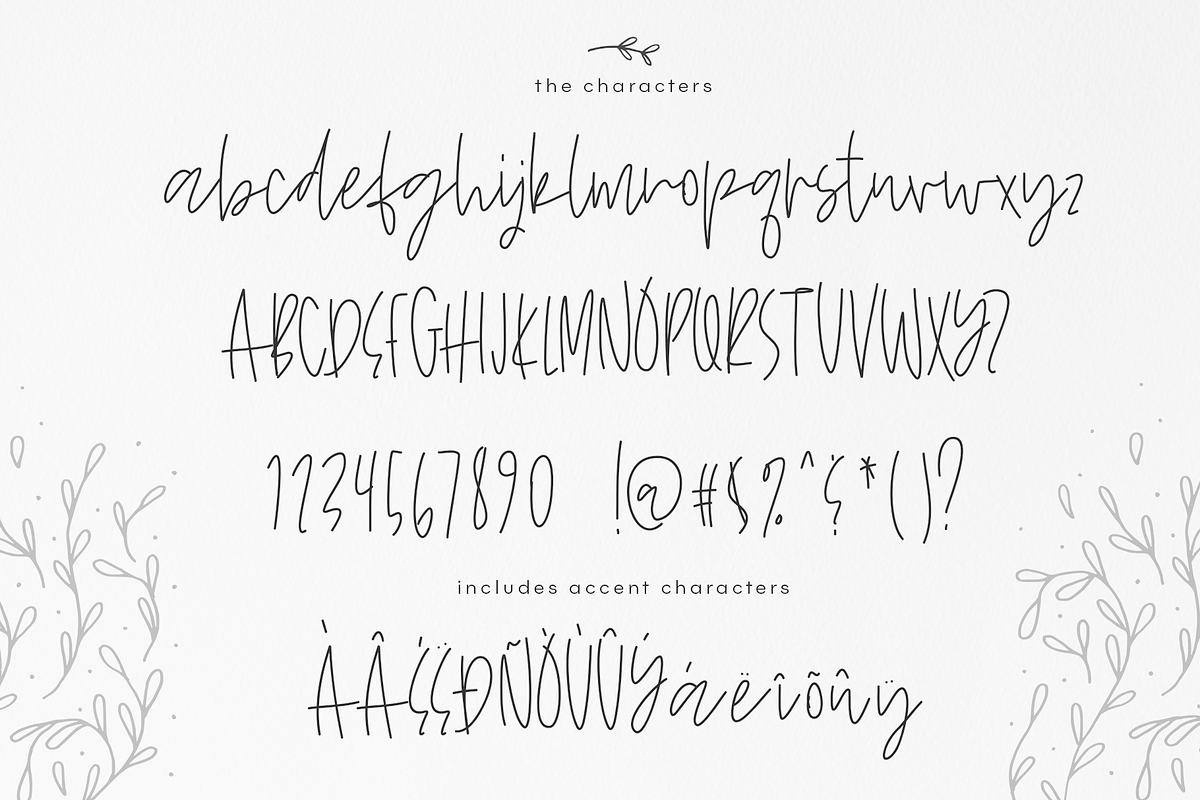 the characters
abcdefghijklmnopqrstuvwxyz
ABCDEFGHIJKLMNOPQRSTUVWXYZ
1234567890 !@#$%^&*()?
includes accent characters
ÀÂÉËÐÑÒÙÛÝáëîõûÿ